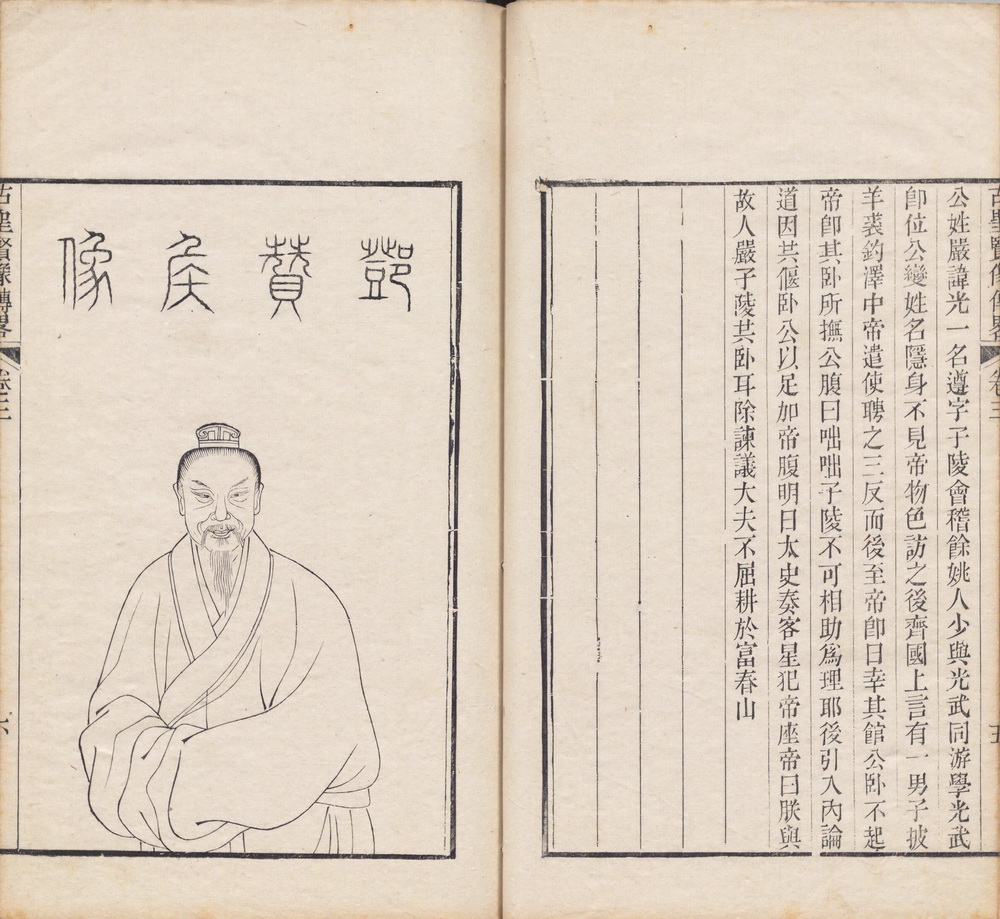 古聖賢像傳畧
卷三
五
公姓嚴諱光一名遵字子陵會稽餘姚人少與光武同游學光武
卽位公變姓名隱身不見帝物色訪之後齊國上言有一男子披
羊裘釣澤中帝遣使聘之三反而後至帝卽日幸其館公卧不起
帝卽其卧所撫公腹曰咄咄子陵不可相助爲理耶後引入內論
道因共偃卧公以足加帝腹明日太史奏客星犯帝座帝曰朕與
故人嚴子陵共卧耳除諫議大夫不屈耕於富春山
酇贊矦像
古聖賢像傳畧
卷三
六